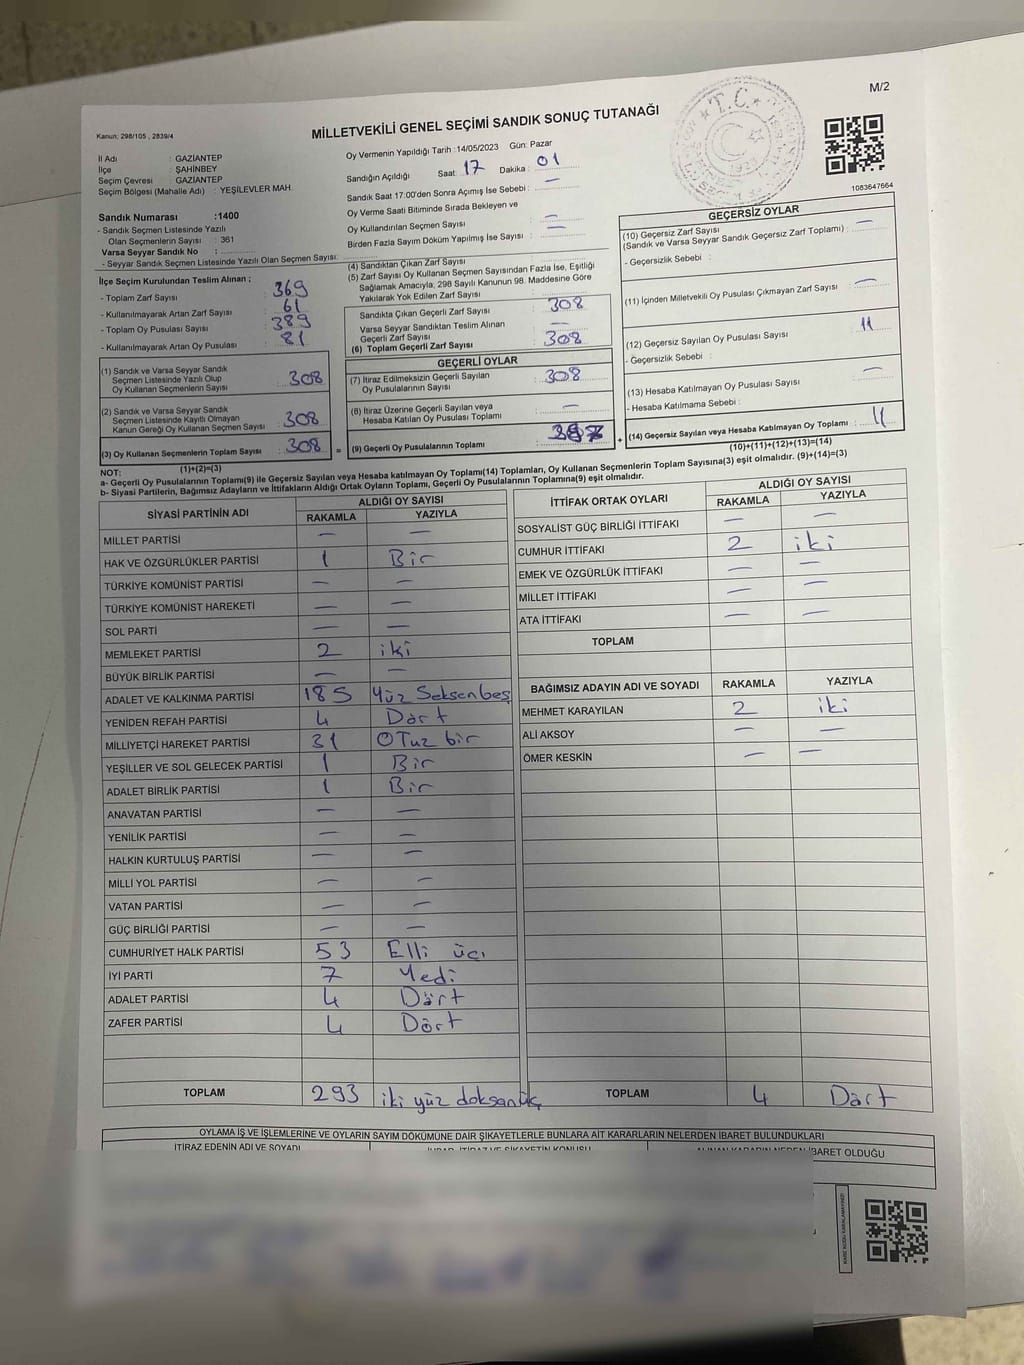 M/2
Kanun: 298/105 , 2839/4
MİLLETVEKİLİ GENEL SEÇİMİ SANDIK SONUÇ TUTANAĞI
T.C.
1083647664
İl Adı : GAZİANTEP
İlçe : ŞAHİNBEY
Seçim Çevresi : GAZİANTEP
Seçim Bölgesi (Mahalle Adı) : YEŞİLEVLER MAH.
Sandık Numarası :1400
- Sandık Seçmen Listesinde Yazılı
Olan Seçmenlerin Sayısı : 361
Varsa Seyyar Sandık No :
- Seyyar Sandık Seçmen Listesinde Yazılı Olan Seçmen Sayısı:
Oy Vermenin Yapıldığı Tarih :14/05/2023 Gün: Pazar
Sandığın Açıldığı Saat: 17 Dakika : 01
Sandık Saat 17:00'den Sonra Açımış İse Sebebi : —
Oy Verme Saati Bitiminde Sırada Bekleyen ve
Oy Kullandırılan Seçmen Sayısı : —
Birden Fazla Sayım Döküm Yapılmış İse Sayısı : —
İlçe Seçim Kurulundan Teslim Alınan ;
- Toplam Zarf Sayısı : 369
- Kullanılmayarak Artan Zarf Sayısı : 61
- Toplam Oy Pusulası Sayısı : 389
- Kullanılmayarak Artan Oy Pusulası : 81
(1) Sandık ve Varsa Seyyar Sandık
Seçmen Listesinde Yazılı Olup
Oy Kullanan Seçmenlerin Sayısı : 308
(2) Sandık ve Varsa Seyyar Sandık
Seçmen Listesinde Kayıtlı Olmayan
Kanun Gereği Oy Kullanan Seçmen Sayısı : 308
(3) Oy Kullanan Seçmenlerin Toplam Sayısı : 308
(1)+(2)=(3)
(4) Sandıktan Çıkan Zarf Sayısı :
(5) Zarf Sayısı Oy Kullanan Seçmen Sayısından Fazla İse, Eşitliği
Sağlamak Amacıyla, 298 Sayılı Kanunun 98. Maddesine Göre
Yakılarak Yok Edilen Zarf Sayısı :
Sandıkta Çıkan Geçerli Zarf Sayısı : 308
Varsa Seyyar Sandıktan Teslim Alınan
Geçerli Zarf Sayısı : —
(6) Toplam Geçerli Zarf Sayısı : 308
GEÇERLİ OYLAR
(7) İtiraz Edilmeksizin Geçerli Sayılan
Oy Pusulalarının Sayısı : 308
(8) İtiraz Üzerine Geçerli Sayılan veya
Hesaba Katılan Oy Pusulası Toplamı : —
= (9) Geçerli Oy Pusulalarının Toplamı :
GEÇERSİZ OYLAR
(10) Geçersiz Zarf Sayısı : —
(Sandık ve Varsa Seyyar Sandık Geçersiz Zarf Toplamı) :
- Geçersizlik Sebebi :
(11) İçinden Milletvekili Oy Pusulası Çıkmayan Zarf Sayısı : —
(12) Geçersiz Sayılan Oy Pusulası Sayısı : 11
- Geçersizlik Sebebi :
(13) Hesaba Katılmayan Oy Pusulası Sayısı : —
- Hesaba Katılmama Sebebi :
+ (14) Geçersiz Sayılan veya Hesaba Katılmayan Oy Toplamı : 11
(10)+(11)+(12)+(13)=(14)
NOT:
a- Geçerli Oy Pusulalarının Toplamı(9) ile Geçersiz Sayılan veya Hesaba katılmayan Oy Toplamı(14) Toplamları, Oy Kullanan Seçmenlerin Toplam Sayısına(3) eşit olmalıdır. (9)+(14)=(3)
b- Siyasi Partilerin, Bağımsız Adayların ve İttifakların Aldığı Ortak Oyların Toplamı, Geçerli Oy Pusulalarının Toplamına(9) eşit olmalıdır.
SİYASİ PARTİNİN ADI ALDIĞI OY SAYISI
RAKAMLA YAZIYLA
MİLLET PARTİSİ — —
HAK VE ÖZGÜRLÜKLER PARTİSİ 1 Bir
TÜRKİYE KOMÜNİST PARTİSİ — —
TÜRKİYE KOMÜNİST HAREKETİ — —
SOL PARTİ — —
MEMLEKET PARTİSİ 2 iki
BÜYÜK BİRLİK PARTİSİ — —
ADALET VE KALKINMA PARTİSİ 185 Yüz Seksenbeş
YENİDEN REFAH PARTİSİ 4 Dört
MİLLİYETÇİ HAREKET PARTİSİ 31 OTuz bir
YEŞİLLER VE SOL GELECEK PARTİSİ 1 Bir
ADALET BİRLİK PARTİSİ 1 Bir
ANAVATAN PARTİSİ — —
YENİLİK PARTİSİ — —
HALKIN KURTULUŞ PARTİSİ — —
MİLLİ YOL PARTİSİ — —
VATAN PARTİSİ — —
GÜÇ BİRLİĞİ PARTİSİ — —
CUMHURİYET HALK PARTİSİ 53 Elli üç
İYİ PARTİ 7 Yedi
ADALET PARTİSİ 4 Dört
ZAFER PARTİSİ 4 Dört
TOPLAM 293 iki yüz doksanüç
İTTİFAK ORTAK OYLARI ALDIĞI OY SAYISI
RAKAMLA YAZIYLA
SOSYALİST GÜÇ BİRLİĞİ İTTİFAKI — —
CUMHUR İTTİFAKI 2 iki
EMEK VE ÖZGÜRLÜK İTTİFAKI — —
MİLLET İTTİFAKI — —
ATA İTTİFAKI — —
TOPLAM
BAĞIMSIZ ADAYIN ADI VE SOYADI RAKAMLA YAZIYLA
MEHMET KARAYILAN 2 iki
ALİ AKSOY — —
ÖMER KESKİN — —
TOPLAM 4 Dört
OYLAMA İŞ VE İŞLEMLERİNE VE OYLARIN SAYIM DÖKÜMÜNE DAİR ŞİKAYETLERLE BUNLARA AİT KARARLARIN NELERDEN İBARET BULUNDUKLARI
İTİRAZ EDENİN ADI VE SOYADI
İBARET OLDUĞU